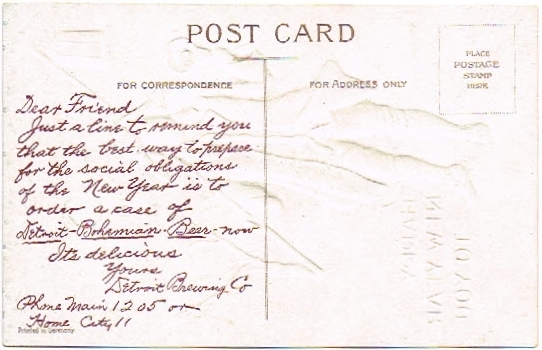 POST CARD
PLACE
POSTAGE
STAMP
HERE
FOR CORRESPONDENCE
FOR ADDRESS ONLY
Dear Friend
Just a line to remind you
that the best way to prepare
for the social obligations
of the New Year is to
order a case of
Detroit-Bohemian-Beer-now
Its delicious
Yours
Detroit Brewing Co
Phone Main 1205 or
Home City 11
Printed in Germany
HAPPY
NEW YEAR
TO YOU